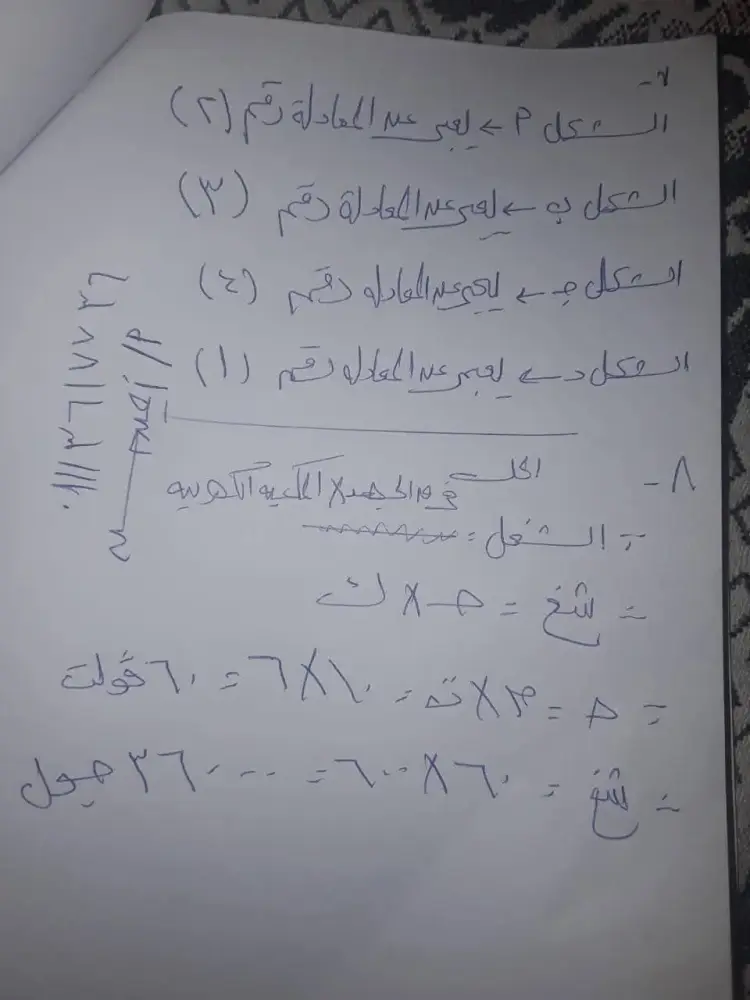 ٧-
الشكل م ← يعبر عن المعادلة رقم (٢)
الشكل ب ← يعبر عن المعادلة رقم (٣)
الشكل جـ ← يعبر عن المعادلة رقم (٤)
الشكل د ← يعبر عن المعادلة رقم (١)
٨- الحل
∵ الشغل = فرق الجهد × الكمية الكهربية
∴ شغ = جـ × ك
∵ جـ = م × ت = ١٠ × ٦ = ٦٠ ڤولت
∴ شغ = ٦٠ × ٦٠٠ = ٣٦٠٠٠ جول
م/